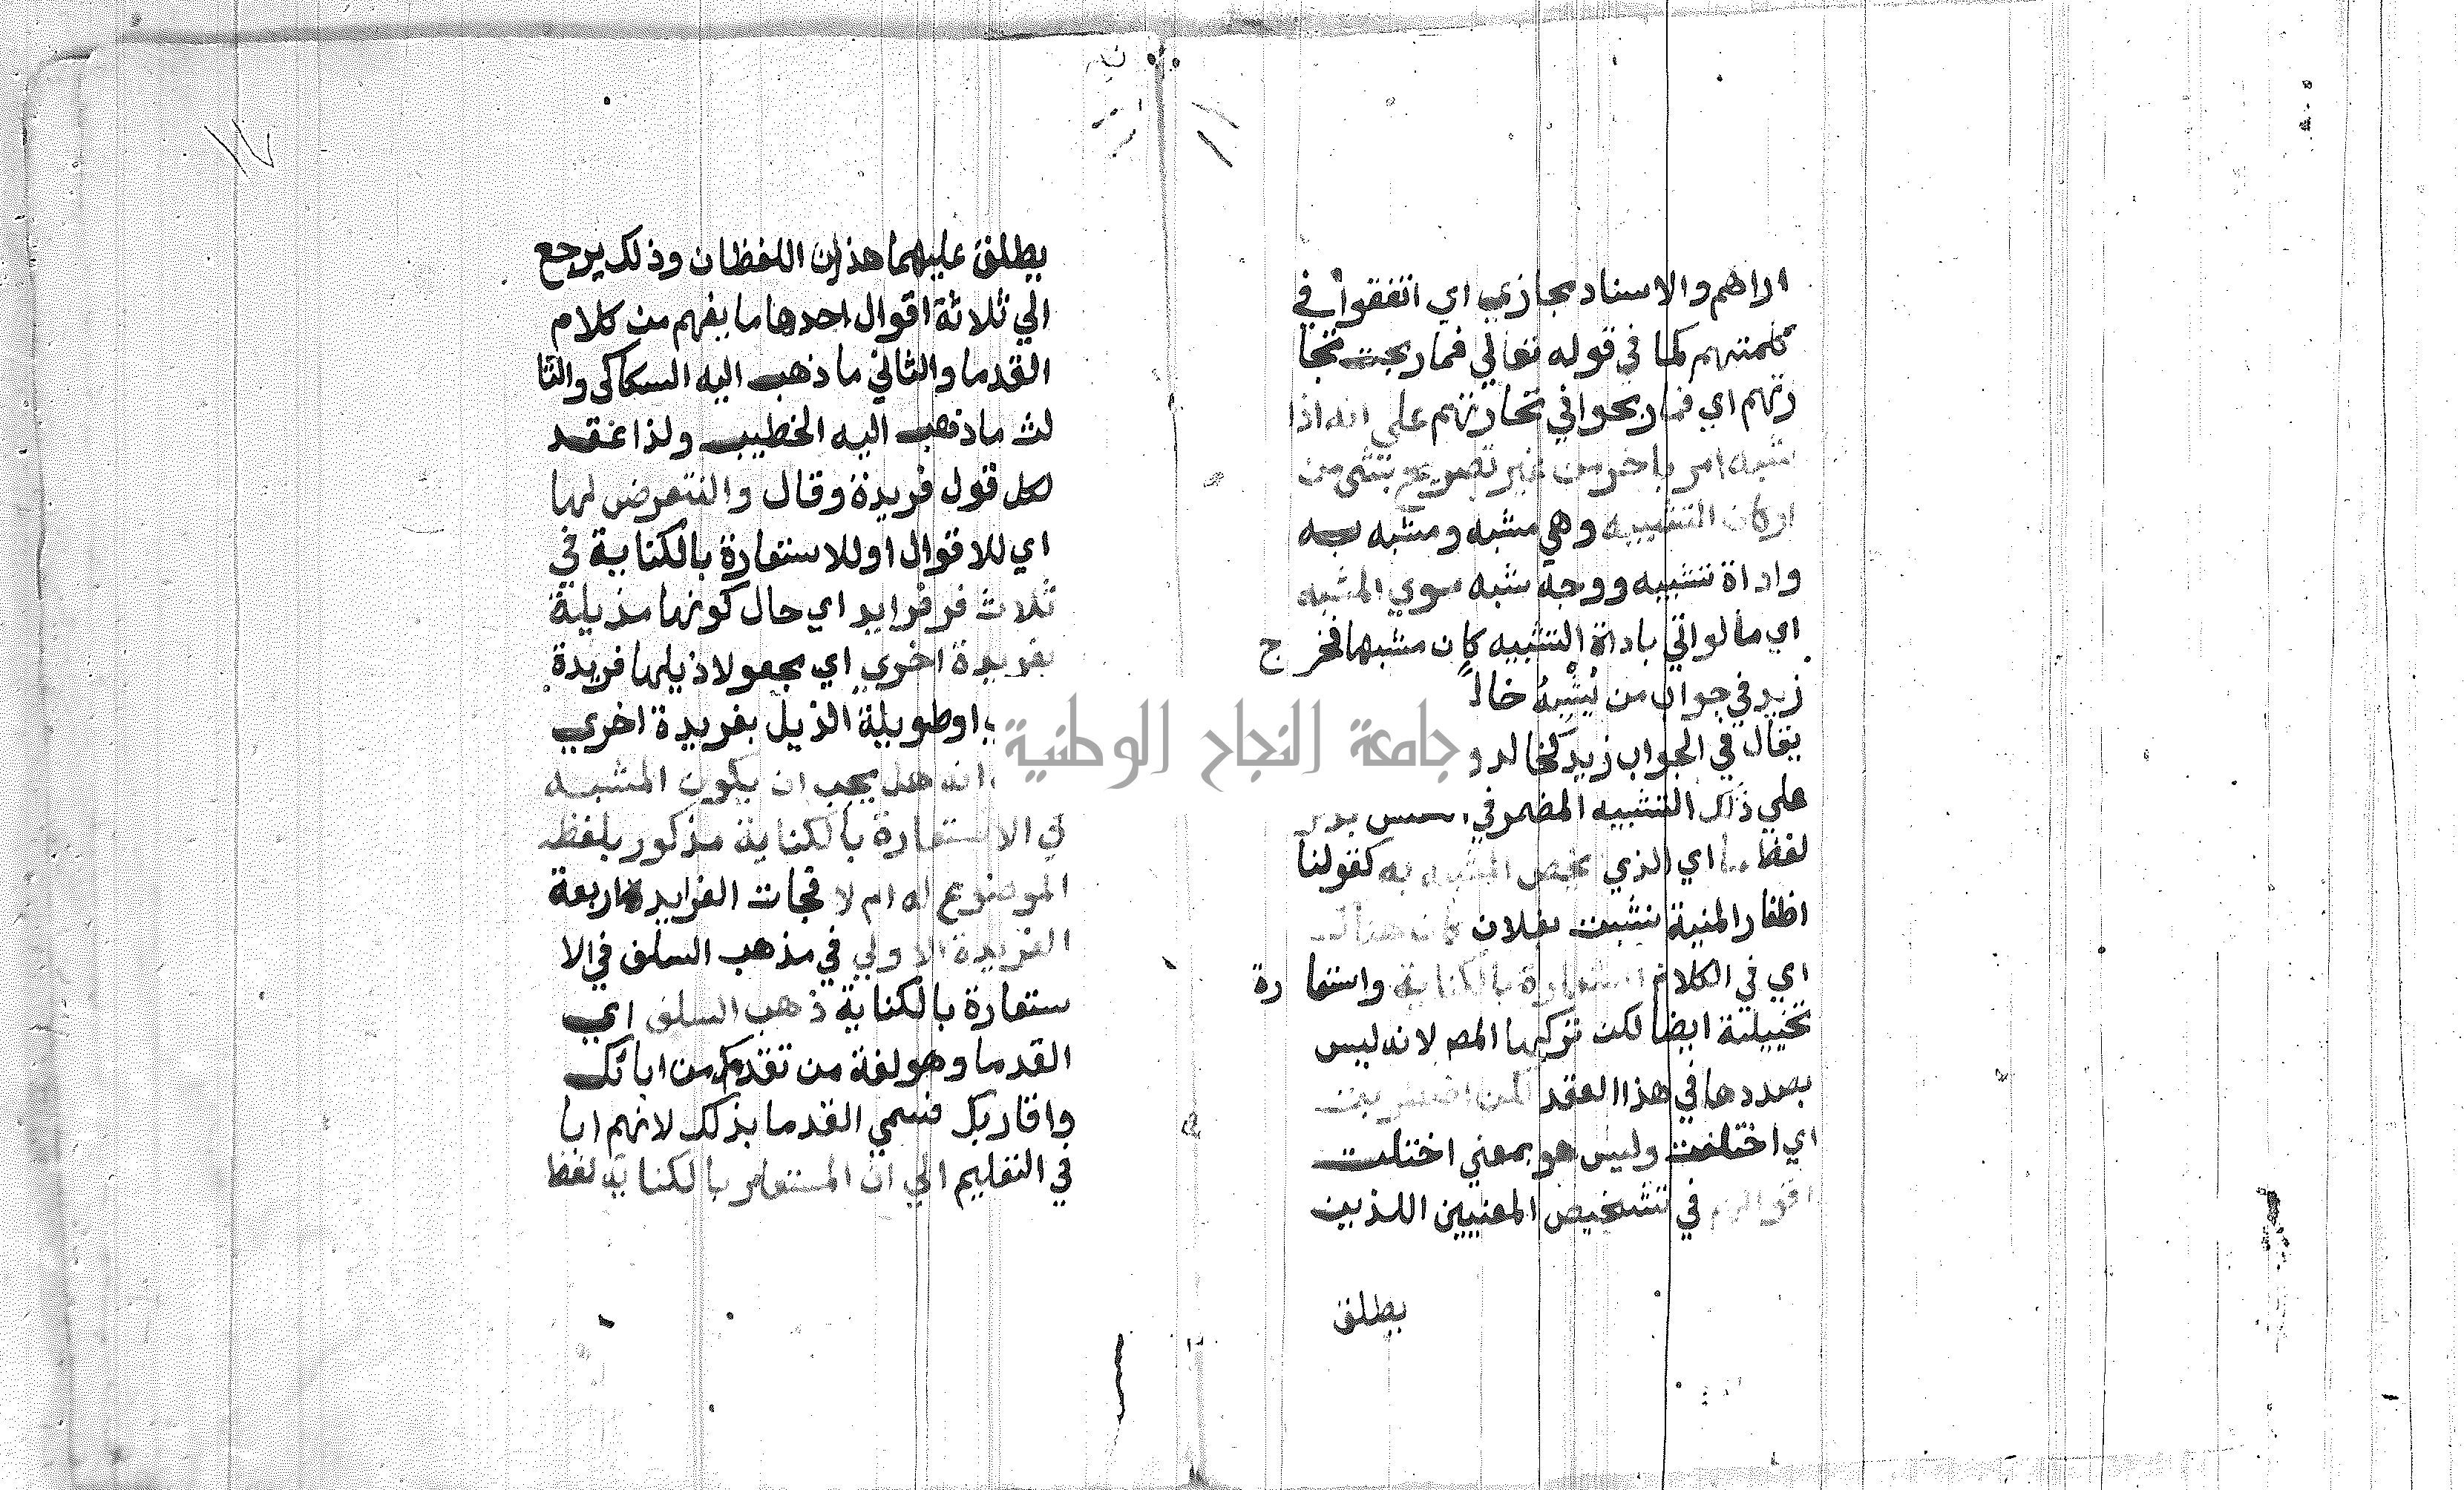 اراهم والاسناد مجازي اي اتفقوا في
كلمتهم كما في قوله تعالي فما ربحت تجا
رتهم اي فما ربحوا في تجارتهم علي انه اذا
شبه امر باخر من غير تصريح بشي من
اركان التشبيه وهي مشبه ومشبه به
واداة تشبيه ووجه شبه سوي المشبه
اي ما لو اتي باداة التشبيه كان مشبها فخرج
زيد في جواب من يشبه خالد
يقال في الجواب زيد كخالد و
علي ذلك التشبيه المضمر في
لفظ اي الذي يخص المشبه به كقولنا
اظفار المنية نشبت بفلان كان هناك
اي في الكلام استعارة بالكناية واستعارة
تخييلية ايضا لكن تركها المص لانه ليس
بصددها في هذا العقد لكن اضطربت
اي اختلفت وليس هو بمعني اختلت
اقوالهم في تشخيص المعنيين اللذين
يطلق
١٧
يطلق عليهما هذان اللفظان وذلك يرجع
الي ثلاثة اقوال احدها ما يفهم من كلام
القدما والثاني ما ذهب اليه السكاكي والثا
لث ما ذهب اليه الخطيب ولذا عقد
لكل قول فريدة وقال والتعرض لها
اي للاقوال او للاستعارة بالكناية في
ثلاث فرفرايد اي حال كونها مذيلة
بفريدة اخري اي مجعولا ذيلها فريدة
اوطويلة الذيل بفريدة اخري
انه هل يجب ان يكون المشبه
في الاستعارة بالكناية مذكور بلفظه
الموضوع له ام لا فجات الفرايد اربعة
الفريدة الاولي في مذهب السلف في الا
ستعارة بالكناية ذهب السلف اي
القدما وهو لغة من تقدمك من ابائك
واقاربك فسمي القدما بذلك لانهم ابا
في التعليم الي ان المستعار بالكناية لفظ
جامعة النجاح الوطنية